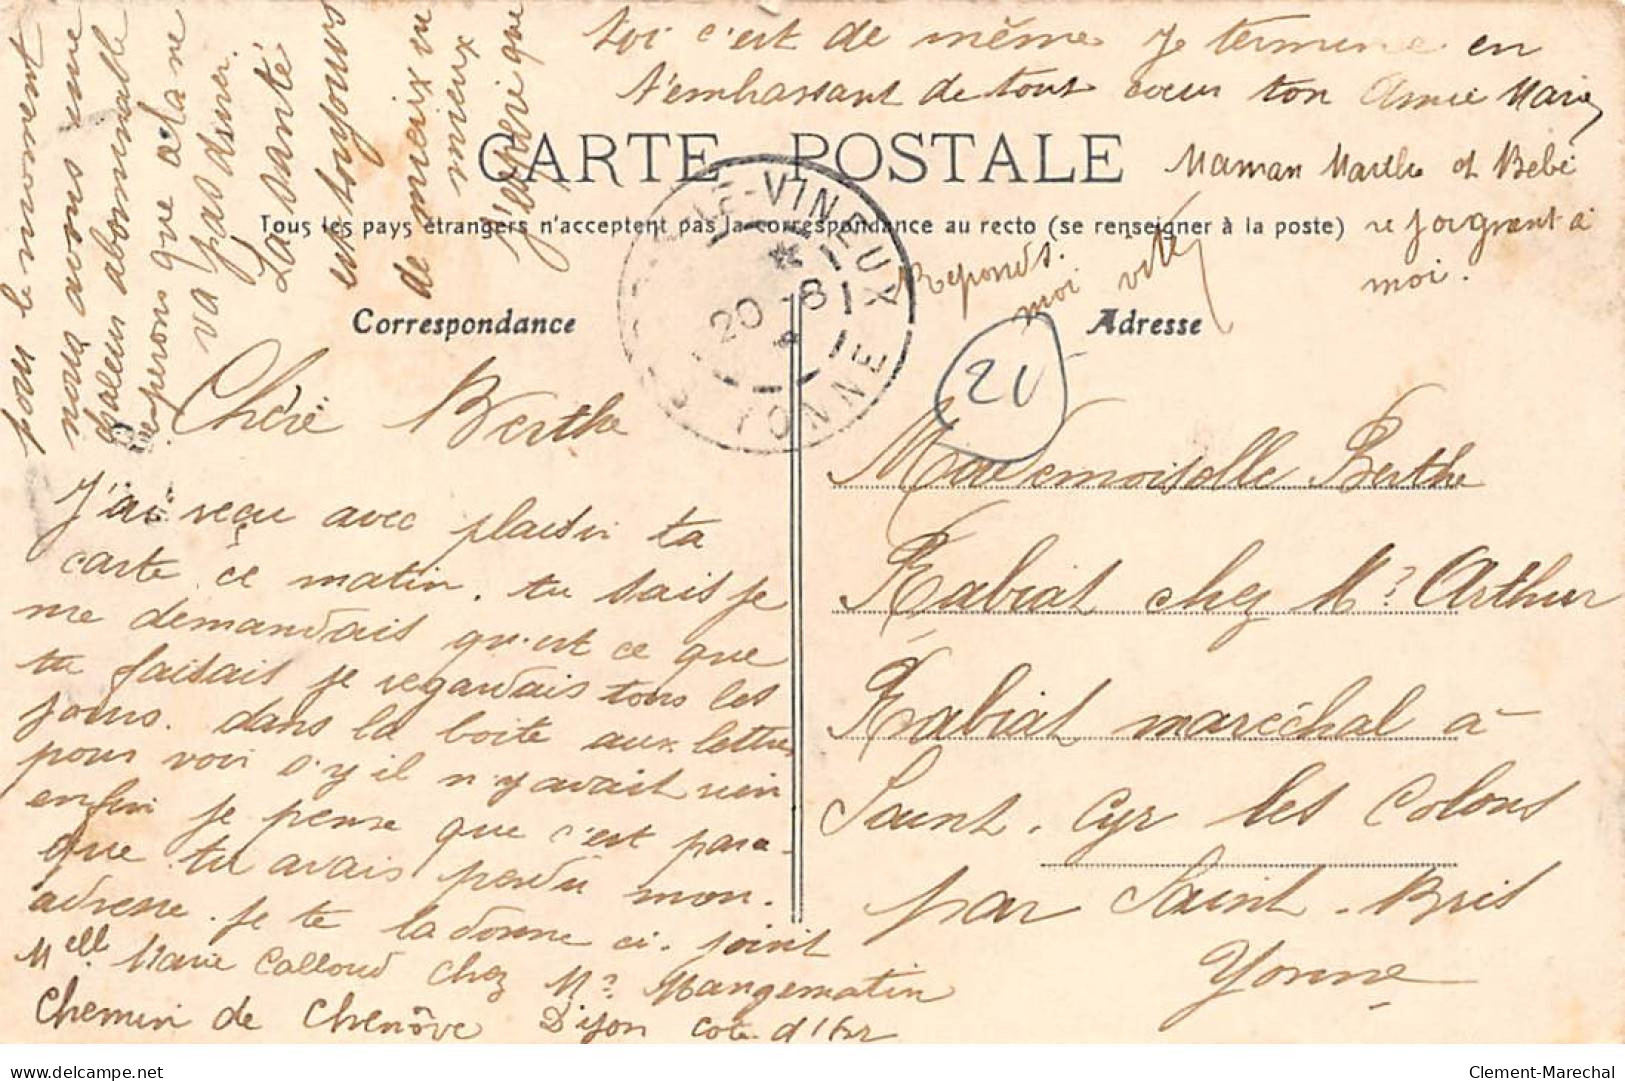 Chère Berthe
J'ai reçu avec plaisir ta
carte ce matin. tu sais je
me demandais qu'est ce que
tu faisais je regardais tous les
jours. dans la boite aux lettres
pour voir s'y il n'y avait rien
enfin je pense que c'est parce-
que tu avais perdu mon.
adresse. je te la donne ci. joint
Melle Marie Calloud chez Mr Mangematin
Chemin de Chenôve Dijon Cote d'Or
pour y
nous avons une
chaleur abominable
esperons que cela ne
va pas durer.
La santé
est toujours
de mieux en
mieux
j'espère que
toi c'est de même je termine en
t'embrassant de tout cœur ton Amie Marie
Maman Marthe et Bebé
se joignent à
moi.
Reponds.
moi vite
CARTE POSTALE
Tous les pays étrangers n'acceptent pas la correspondance au recto (se renseigner à la poste)
Correspondance
Adresse
LE-VINEUX
20 -8
YONNE
Mademoiselle Berthe
Rabiat chez Mr Arthur
Rabiat maréchal à
Saint. Cyr les Colons
par Saint. Bris
Yonne
Clement-Marechal